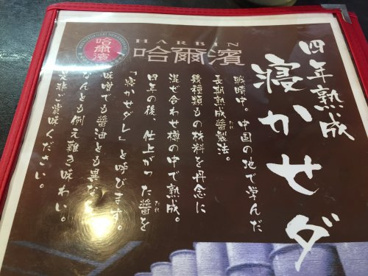 四年熟成
寝かせダ
HARBIN
哈爾濱
哈爾濱
戦時中、中国の地で学んだ
長期熟成醤製法。
幾種類もの材料を丹念に
混ぜ合わせ樽の中で熟成。
四年の後、仕上がった醤を
「寝かせダレ」と呼びます。
味噌でも醤油とも異な
んとも例え難き味わい。
是非ご賞味ください。